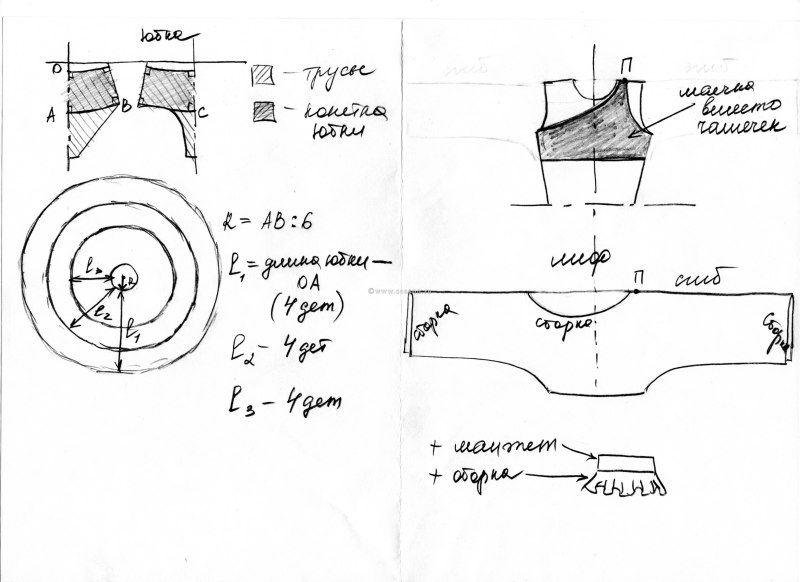 Юбка
D
A
B
C
— трусы
— кокетка
юбки
R = AB : 6
ℓ₁ = длина юбки —
DA
(4 дет)
ℓ₂ — 4 дет
ℓ₃ — 4 дет
ℓ₃
R
ℓ₂
ℓ₁
П
маечка
вместо
чашечек
лиф
П
сгиб
сборка
сборка
сборка
+ манжет
+ оборка